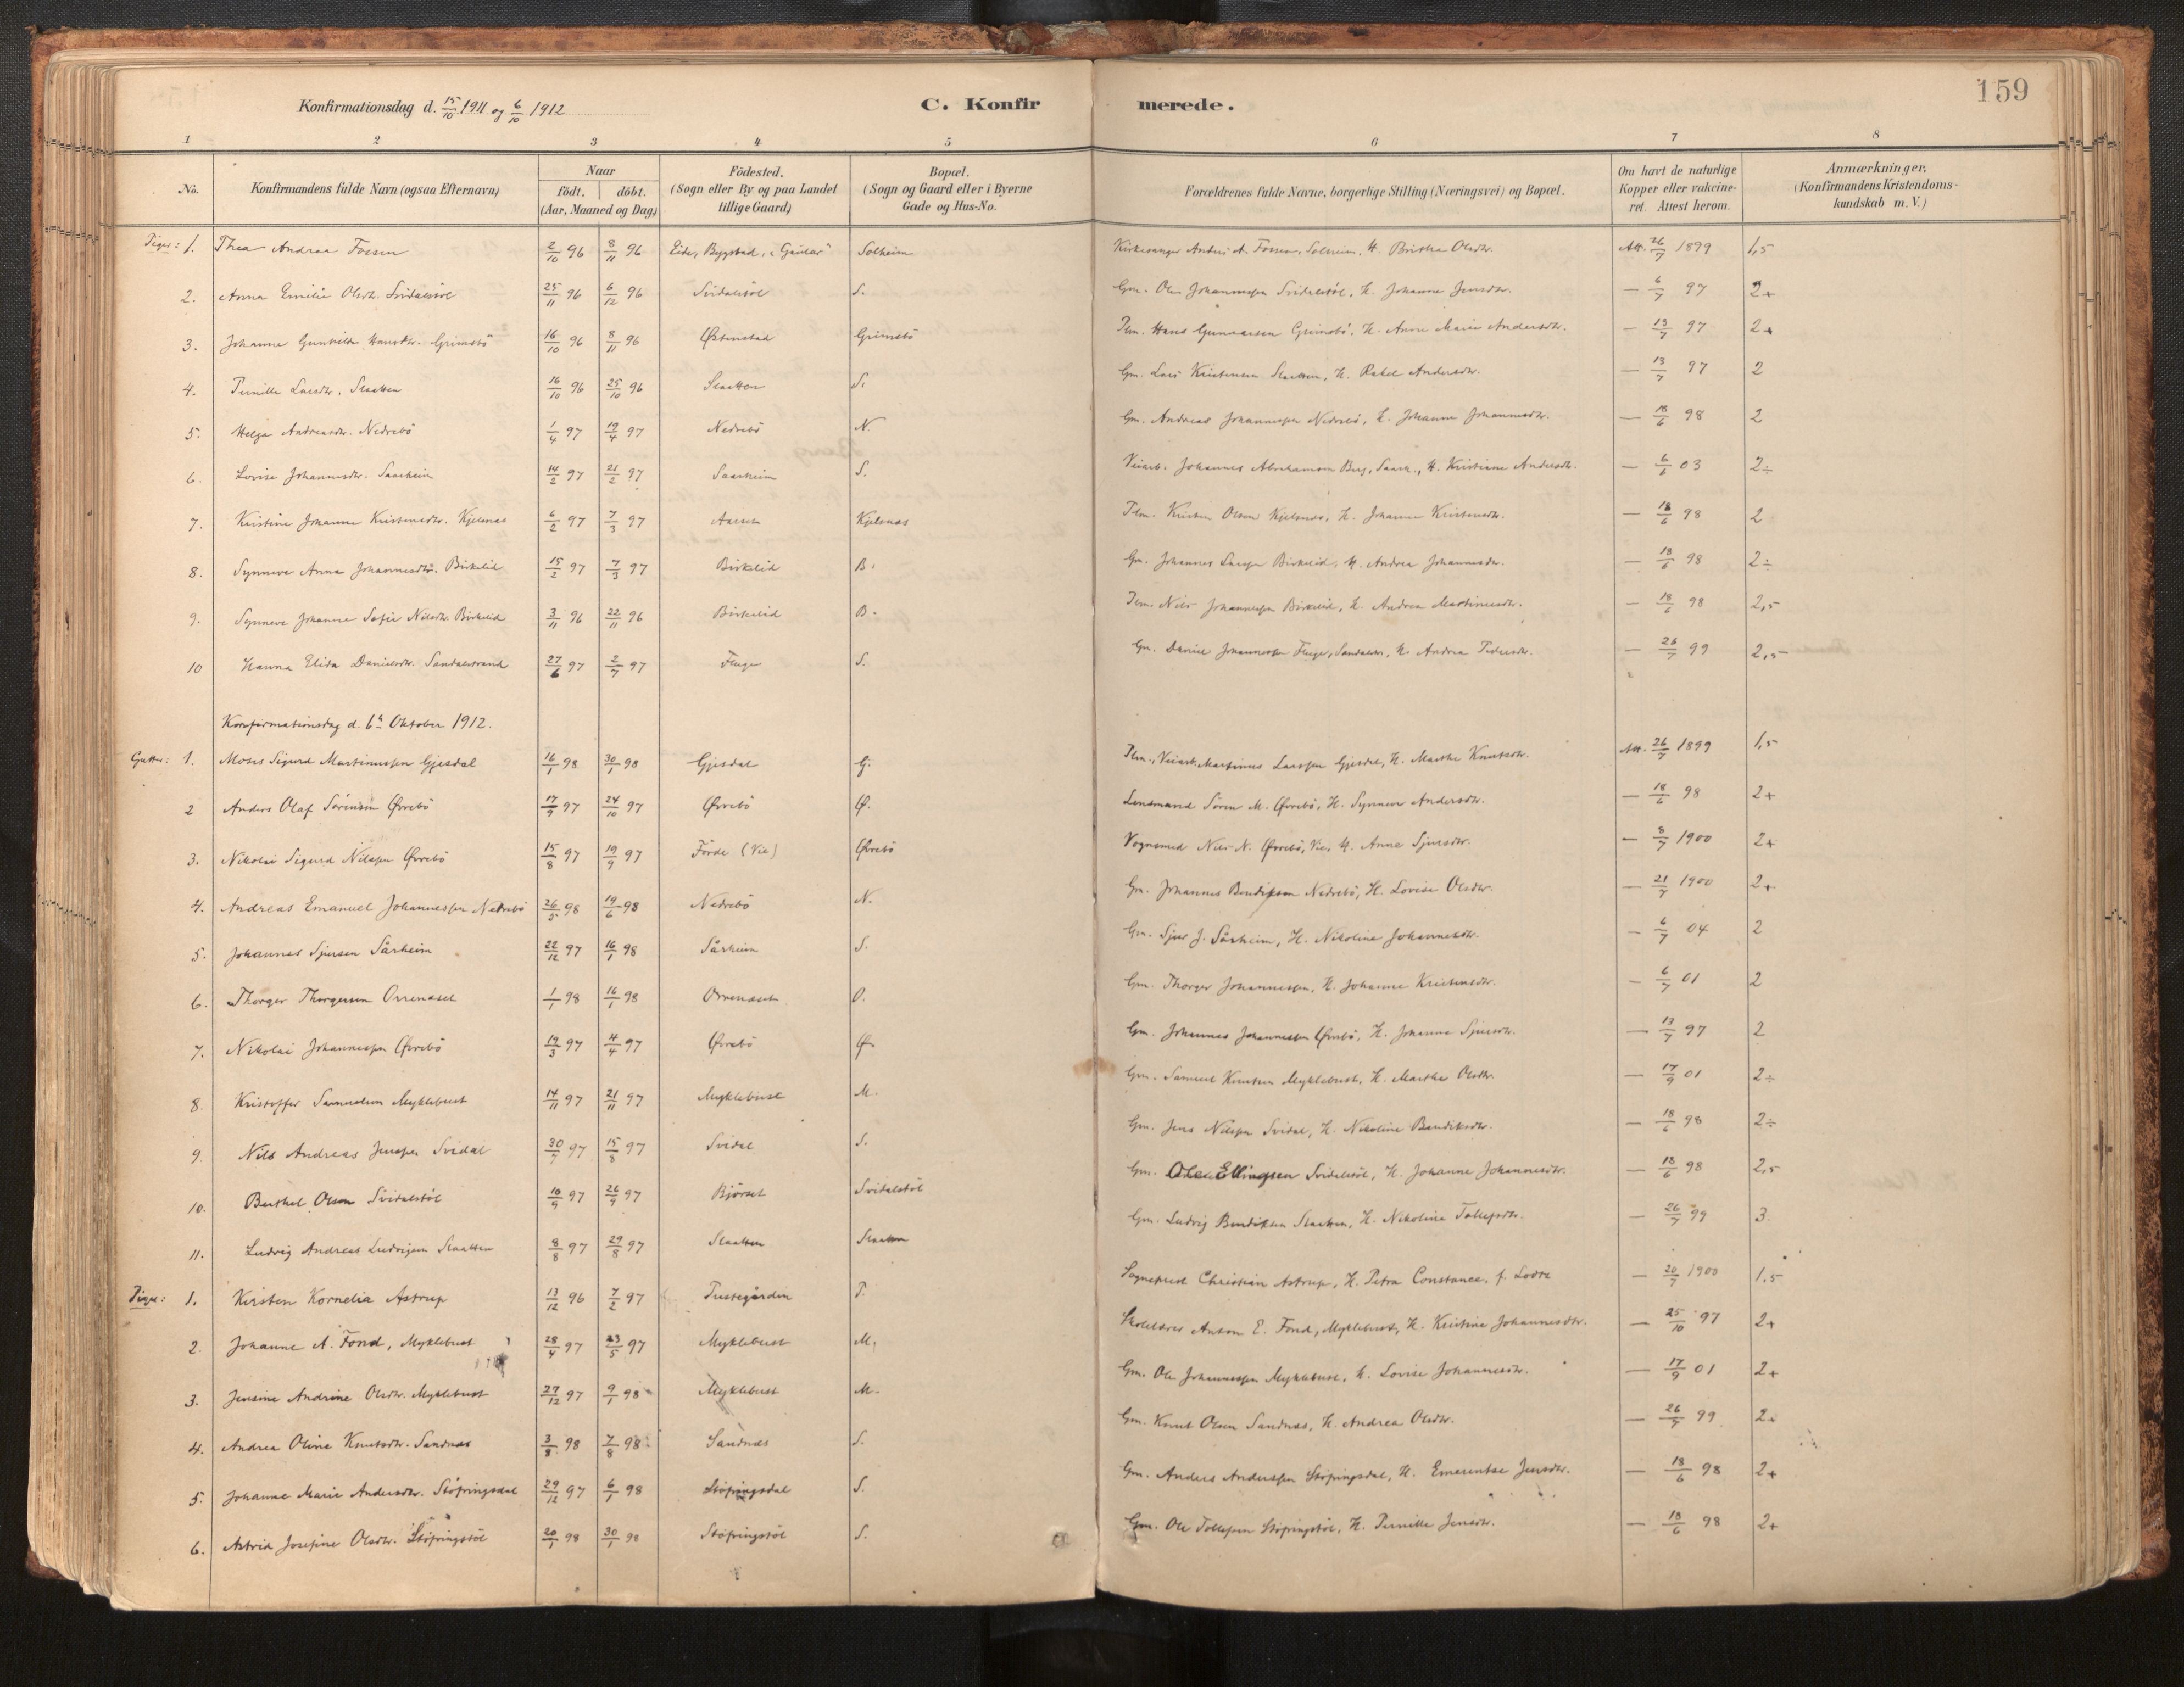 159
Konfirmationsdag d. 15/10 1911 og 6/10 1912
C. Konfirmerede.
1 2 3 4 5 6 7 8
No.
Konfirmandens fulde Navn (ogsaa Efternavn)
Naar
födt. döbt.
(Aar, Maaned og Dag)
Födested.
(Sogn eller By og paa Landet
tillige Gaard)
Bopæl.
(Sogn og Gaard eller i Byerne
Gade og Hus-No.
Forældrenes fulde Navne, borgerlige Stilling (Næringsvei) og Bopæl.
Om havt de naturlige
Kopper eller vakcine-
ret. Attest herom.
Anmærkninger.
(Konfirmandens Kristendoms-
kundskab m. V.)
Piger: 1. Thea Andrea Fossen 2/10 96 8/11 96 Eide, Bygstad, "Gaular" Solheim Kirkesanger Anders A. Fossen, Solheim, H. Brithe Olsdtr. Att. 26/7 1899 1,5
2. Anna Emilie Olsdtr. Svidalstöl 25/11 96 6/12 96 Svidalstöl S. Gm. Ole Johannessen Svidalstöl, H. Johanne Jensdtr. — 6/7 97 2+
3. Johanne Gunhilda Hansdtr. Grimsbö 16/10 96 8/11 96 Østenstad Grimsbö Plm. Hans Gunnarsen Grimsbö, H. Anne Marie Andersdtr. — 13/7 97 2+
4. Pernille Larsdtr. Slaatten 16/10 96 25/10 96 Slaatten S. Gm. Lars Kristensen Slaatten, H. Rakel Andersdtr. — 13/7 97 2
5. Helga Andreasdtr. Nedrebö 1/4 97 19/4 97 Nedrebö N. Gm. Andreas Johannessen Nedrebö, H. Johanne Johannesdtr. — 18/6 98 2
6. Lovise Johannesdtr. Saarheim 14/2 97 21/2 97 Saarheim S. Veiarb. Johannes Abrahamsen Berg, Saarh., H. Kristiane Andersdtr. — 6/6 03 2÷
7. Kristine Johanne Kristensdtr. Kjelsnæs 6/2 97 7/3 97 Kjelsnæs Plm. Kristen Olsen Kjelsnæs, H. Johanne Kristensdtr. — 18/6 98 2
8. Synneve Anna Johannesdtr. Birkelid 15/2 97 7/3 97 Birkelid B. Gm. Johannes Larsen Birkelid, H. Andrea Johannesdtr. — 18/6 98 2÷
9. Synneve Johanna Sofie Nilsdtr. Birkelid 3/11 96 22/11 96 Birkelid B. Plm. Nils Johannessen Birkelid, H. Andrea Martinusdtr. — 18/6 98 2,5
10 Hanna Elida Danielsdtr. Sandalstrand 27/6 97 2/7 97 Fluge S. Gm. Daniel Johannessen Fluge, Sandalstr., H. Andrea Pedersdtr. — 26/7 99 2,5
Konfirmationsdag d. 6te Oktober 1912.
Gutter: 1. Moses Sigurd Martinussen Gjesdal 16/1 98 30/1 98 Gjesdal G. Plm., Veiarb. Martinus Larssen Gjesdal, H. Marthe Knutsdtr. Att. 26/7 1899 1,5
2 Anders Olaf Sörensen Øvrebö 17/9 97 24/10 97 Øvrebö Ø. Lensmand Sören M. Øvrebö, H. Synneve Andersdtr. — 18/6 98 2+
3. Nikolai Sigurd Nilssen Øvrebö 15/8 97 19/9 97 Förde (Vie) Øvrebö Vognsmed Nils N. Øvrebö, Vie, H. Anne Sjursdtr. — 8/7 1900 2+
4. Andreas Emanuel Johannessen Nedrebö 26/5 98 19/6 98 Nedrebö N. Gm. Johannes Bendiksen Nedrebö, H. Lovise Olsdtr. — 21/7 1900 2+
5. Johannes Sjursen Sårheim 22/12 97 16/1 98 Sårheim S. Gm. Sjur J. Sårheim, H. Nikoline Johannesdtr. — 6/7 04 2
6. Thorger Thorgersen Orrenæset 1/1 98 16/1 98 Orrenæset O. Gm. Thorger Johannessen, H. Johanne Kristensdtr. — 6/7 01 2
7. Nikolai Johannessen Øvrebö 19/3 97 4/4 97 Øvrebö Ø. Gm. Johannes Johannessen Øvrebö, H. Johanna Sjursdtr. — 13/7 97 2
8. Kristoffer Samuelsen Myklebust 14/11 97 21/11 97 Myklebust M. Gm. Samuel Knutsen Myklebust, H. Marthe Olsdtr. — 17/9 01 2÷
9. Nils Andreas Jenssen Svidal 30/7 97 15/8 97 Svidal S. Gm. Jens Nilssen Svidal, H. Nikoline Bendiksdtr. — 18/6 98 2÷
10. Berthel Olsen Svidalstöl 10/9 97 26/9 97 Bjórset Svidalstöl Gm. Ole Ellingsen Svidalstöl, H. Johanne Johannesdtr. — 18/6 98 2,5
11. Ludvig Andreas Ludvigsen Slaatten 8/8 97 29/8 97 Slaatten Slaatten Gm. Ludvig Bendiksen Slaatten, H. Nikolina Tollefsdtr. — 26/7 99 3.
Piger: 1. Kirsten Kornelia Astrup 13/12 96 7/2 97 Prestegården P. Sogneprest Christian Astrup, H. Petra Constance, f. Lodtz — 20/7 1900 1,5
2. Johanne A. Fond, Myklebust 28/4 97 23/5 97 Myklebust M. Skolelærer Anton E. Fond, Myklebust, H. Kristine Johannesdtr. — 25/10 97 2+
3. Jensine Andrine Olsdtr. Myklebust 27/12 97 9/1 98 Myklebust M. Gm. Ole Johannessen Myklebust, H. Lovise Johannesdtr. — 17/9 01 2+
4. Andrea Oline Knutsdtr. Sandnæs 3/8 98 7/8 98 Sandnæs S. Gm. Knut Olsen Sandnæs, H. Andrea Olsdtr. — 26/7 99 2+
5. Johanne Marie Andersdtr. Stöfringsdal 29/12 97 6/1 98 Stöfringsdal S. Gm. Anders Anderssen Stöfringsdal, H. Emerentse Jensdtr. — 18/6 98 2+
6. Astrid Josefine Olsdtr. Stöfringstöl 20/1 98 30/1 98 Stöfringstöl S. Gm. Ole Tollefsen Stöfringstöl, H. Pernille Jensdtr. — 18/6 98 2+